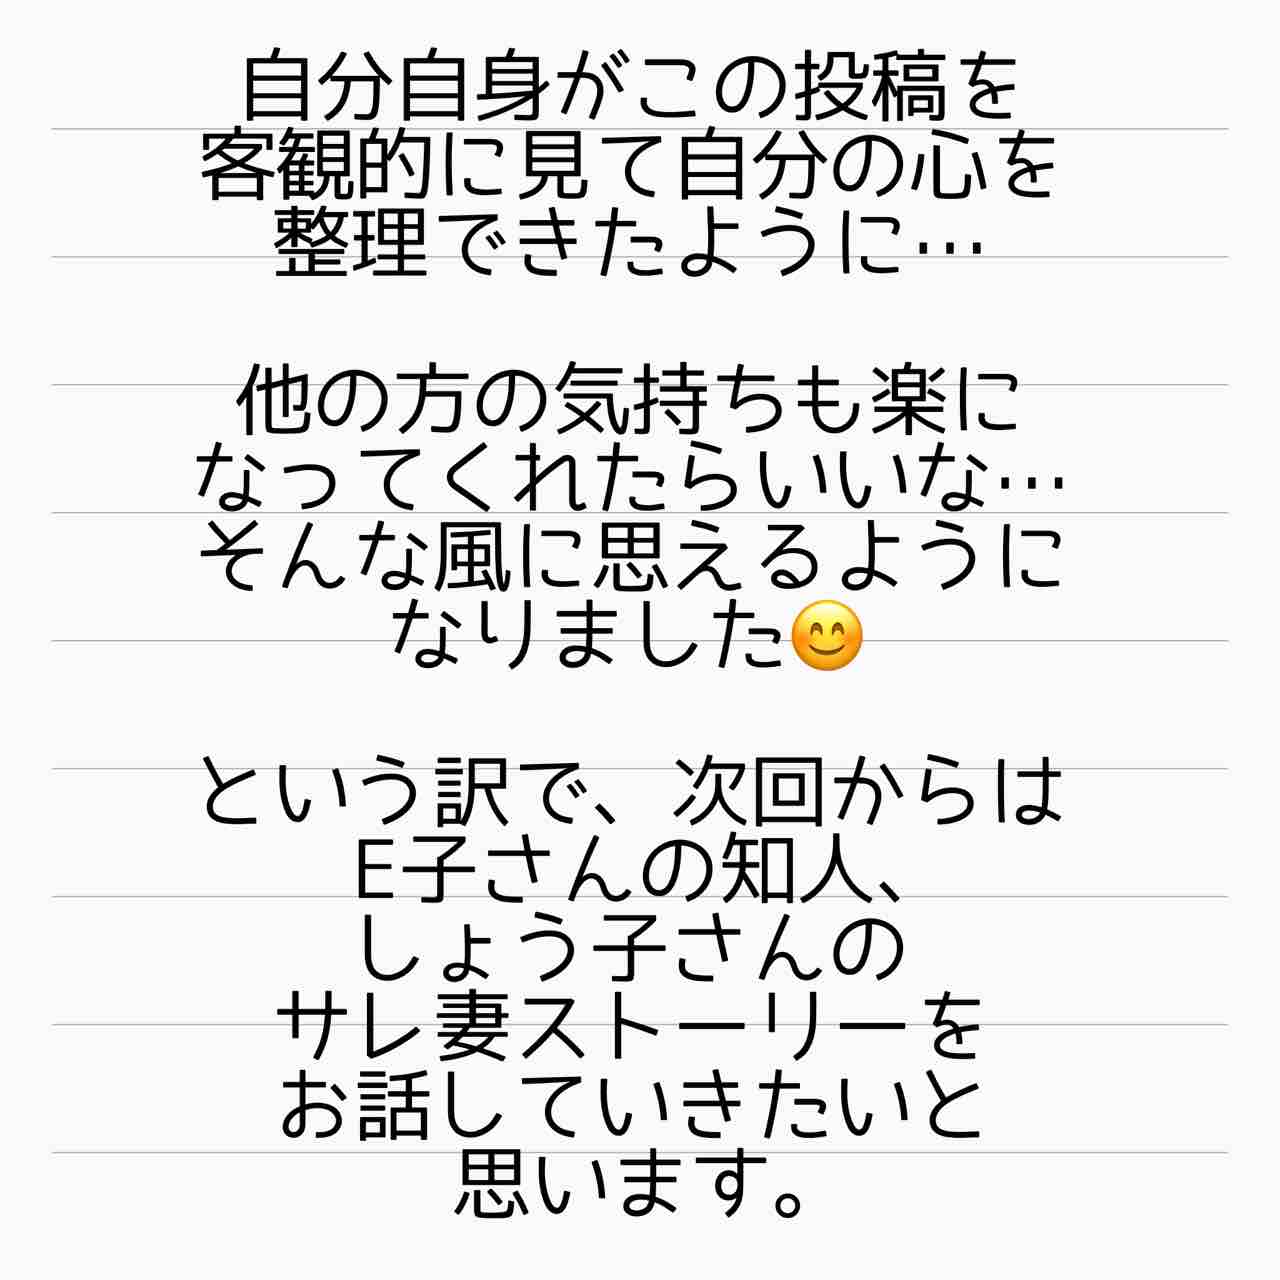 自分自身がこの投稿を
客観的に見て自分の心を
整理できたように…
他の方の気持ちも楽に
なってくれたらいいな…
そんな風に思えるように
なりました😊
という訳で、次回からは
E子さんの知人、
しょう子さんの
サレ妻ストーリーを
お話していきたいと
思います。